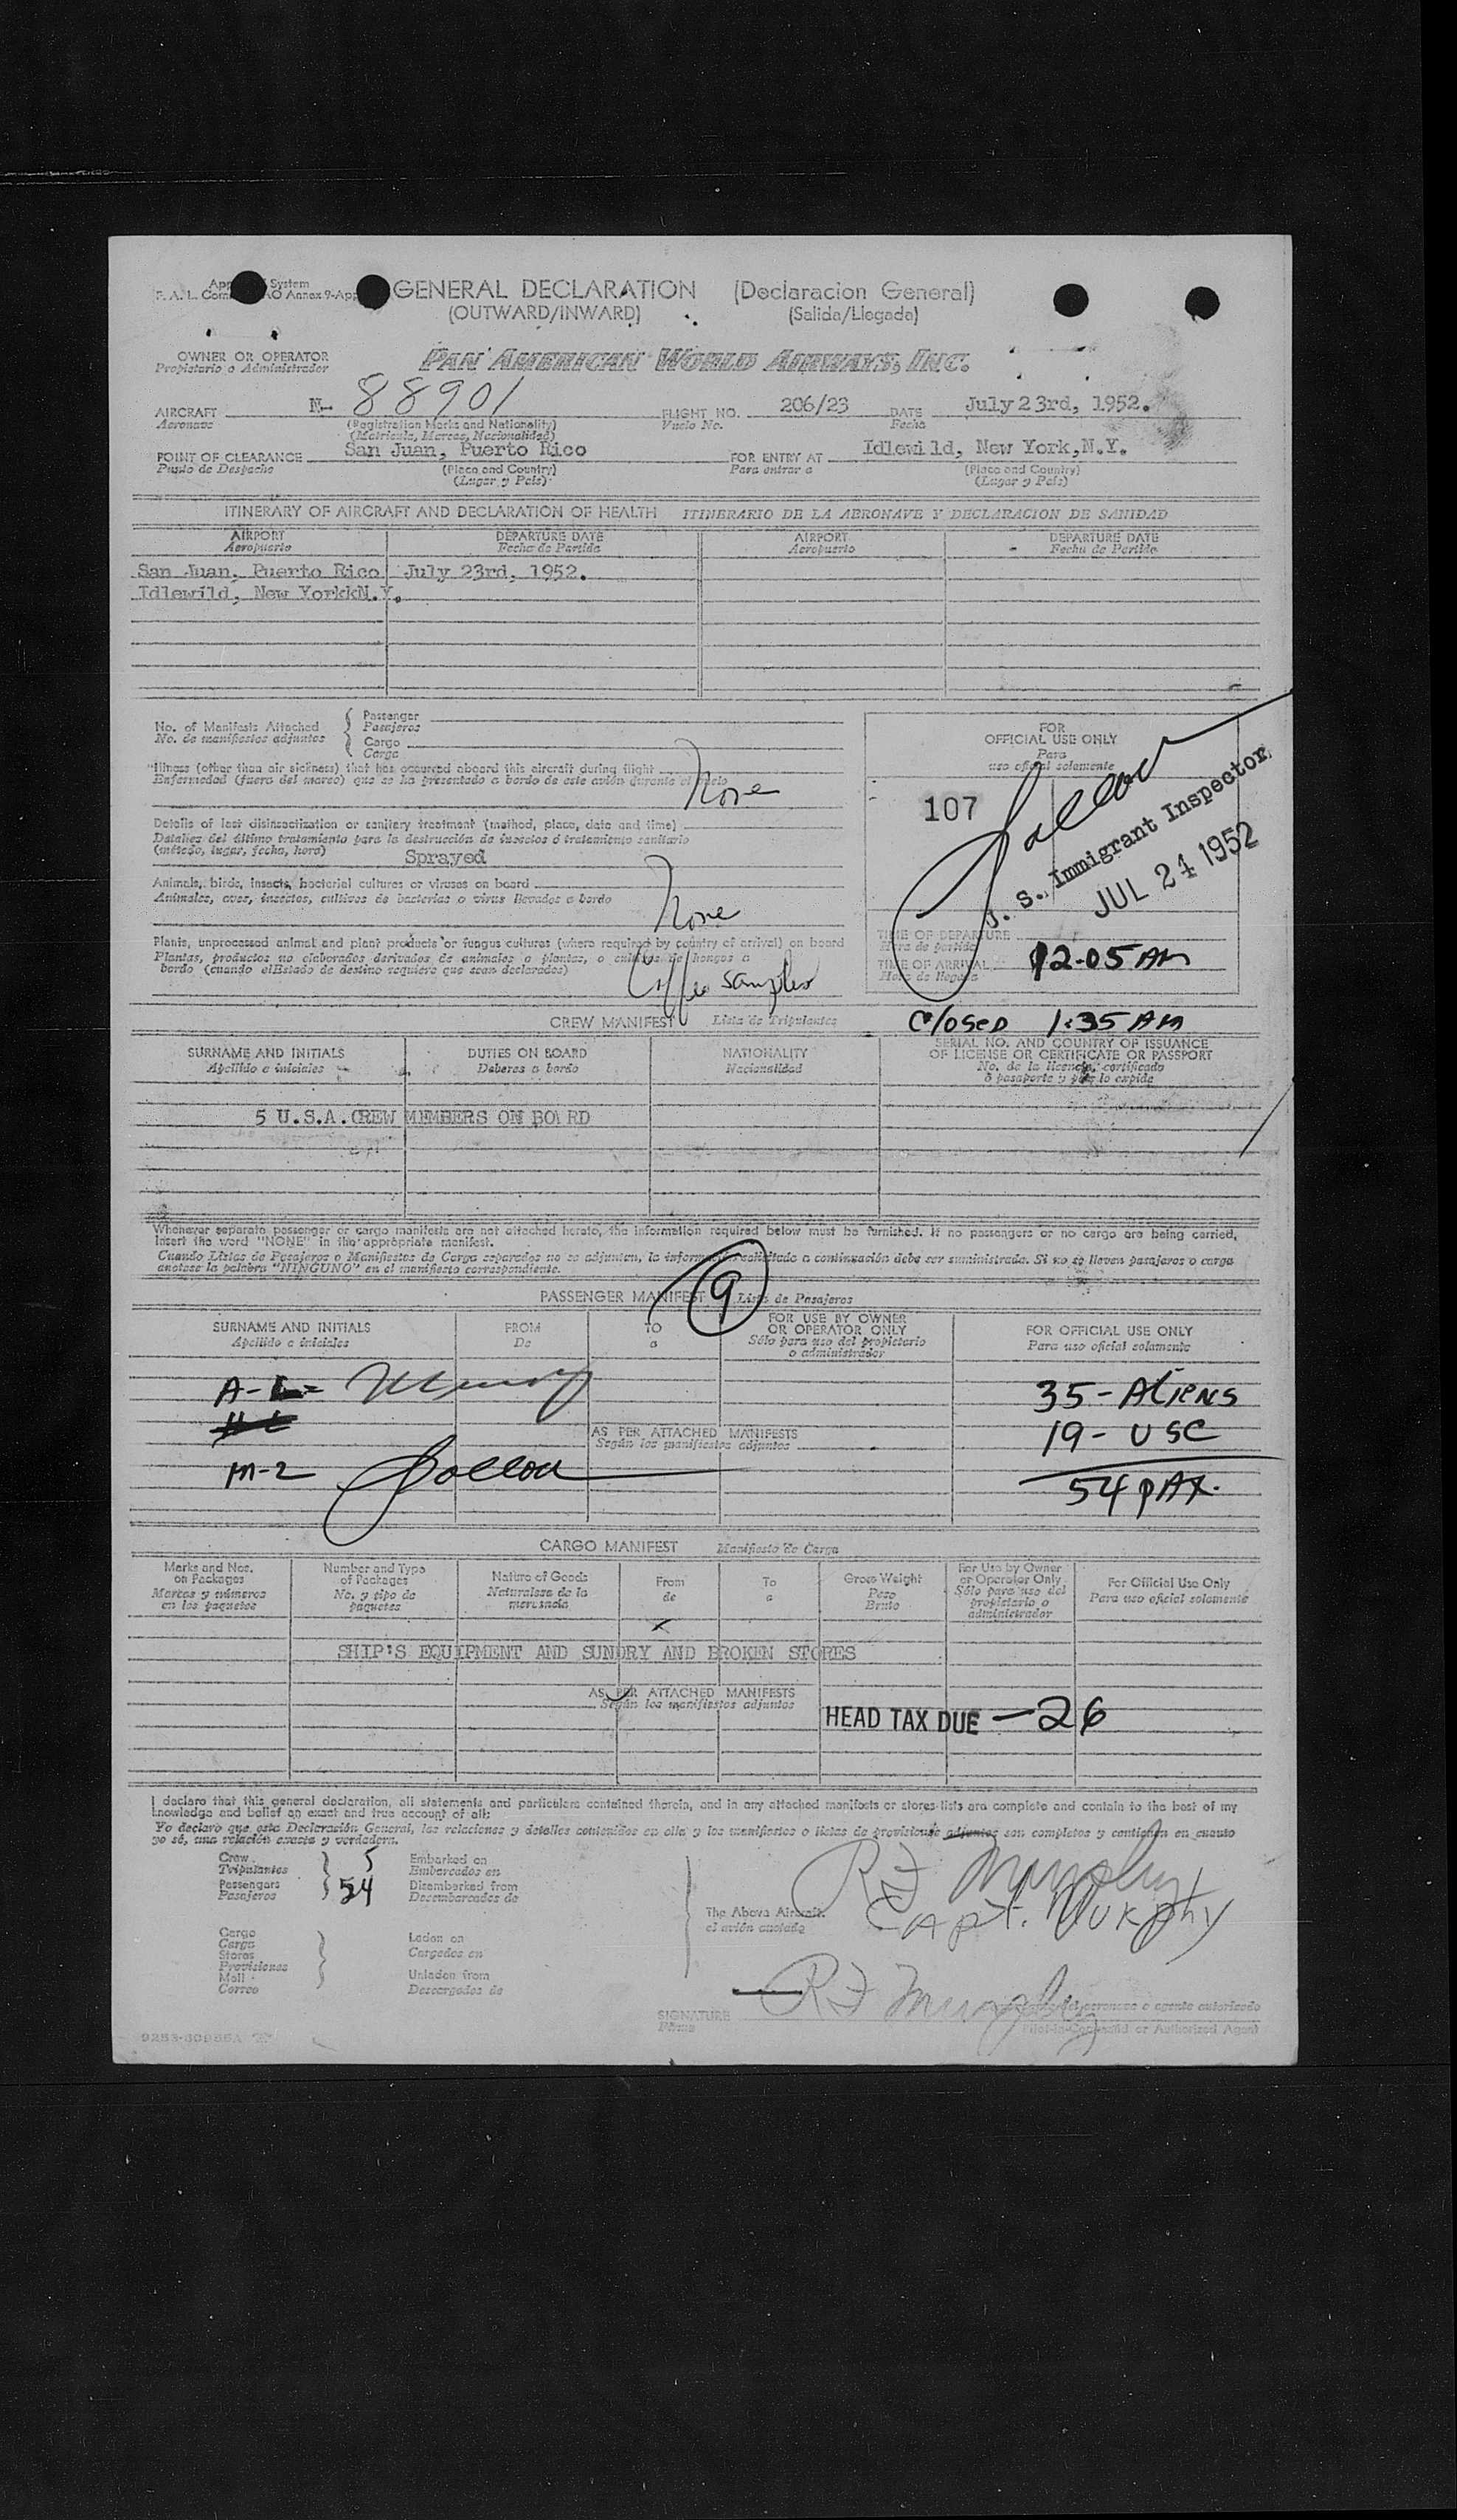 App System
F. A. L. Com AO Annex 9-App
GENERAL DECLARATION (Declaracion General)
(OUTWARD/INWARD) (Salida/Llegada)
OWNER OR OPERATOR
Propietario o Administrador
PAN AMERICAN WORLD AIRWAYS, INC.
AIRCRAFT N- 88901 FLIGHT NO. 206/23 DATE July 23rd, 1952.
Aeronave (Registration Marks and Nationality) Vuelo No. Fecha
(Matricula, Marcas, Nacionalidad)
POINT OF CLEARANCE San Juan, Puerto Rico FOR ENTRY AT Idlewild, New York,N.Y.
Punto de Despacho (Place and Country) Para entrar a (Place and Country)
(Lugar y Pais) (Lugar y Pais)
ITINERARY OF AIRCRAFT AND DECLARATION OF HEALTH ITINERARIO DE LA AERONAVE Y DECLARACION DE SANIDAD
AIRPORT DEPARTURE DATE AIRPORT DEPARTURE DATE
Aeropuerto Fecha de Partida Aeropuerto Fecha de Partida
San Juan, Puerto Rico July 23rd, 1952.
Idlewild, New YorkkN.Y.
No. of Manifests Attached Passenger
No. de manifiestos adjuntos Pasajeros
Cargo
Carga
FOR
OFFICIAL USE ONLY
Para
uso oficial solamente
Illness (other than air sickness) that has occurred aboard this aircraft during flight
Enfermedad (fuera del mareo) que se ha presentado a bordo de este avión durante el vuelo
None
107
U. S. Immigrant Inspector
JUL 24 1952
Details of last disinsectization or sanitary treatment (method, place, date and time)
Detalles del último tratamiento para la destrucción de insectos ó tratamiento sanitario
(método, lugar, fecha, hora) Sprayed
Animals, birds, insects, bacterial cultures or viruses on board
Animales, aves, insectos, cultivos de bacterias o virus llevados a bordo
None
Plants, unprocessed animal and plant products or fungus cultures (where required by country of arrival) on board
Plantas, productos no elaborados derivados de animales o plantas, o cultivos de hongos a
bordo (cuando elEstado de destino requiere que sean declarados)
Coffee samples
TIME OF DEPARTURE
Hora de partida
TIME OF ARRIVAL 12-05 AM
Hora de llegada
CREW MANIFEST Lista de Tripulantes
Closed 1:35 AM
SURNAME AND INITIALS DUTIES ON BOARD NATIONALITY SERIAL NO. AND COUNTRY OF ISSUANCE
Apellido e iniciales Deberes a bordo Nacionalidad OF LICENSE OR CERTIFICATE OR PASSPORT
No. de la licencia, certificado
ó pasaporte y país lo expide
5 U.S.A.CREW MEMBERS ON BOARD
Whenever separate passenger or cargo manifests are not attached hereto, the information required below must be furnished. If no passengers or no cargo are being carried,
insert the word "NONE" in the appropriate manifest.
Cuando Listas de Pasajeros o Manifiestos de Carga separados no se adjunten, la información solicitada a continuación debe ser suministrada. Si no se llevan pasajeros o carga
anotese la palabra "NINGUNO" en el manifiesto correspondiente.
9
PASSENGER MANIFEST Lista de Pasajeros
SURNAME AND INITIALS FROM TO FOR USE BY OWNER OR OPERATOR ONLY FOR OFFICIAL USE ONLY
Apellido e iniciales De a Sólo para uso del propietario o administrador Para uso oficial solamente
35 - ALIENS
AS PER ATTACHED MANIFESTS 19 - USC
Según los manifiestos adjuntos
M-2
54 PAX.
CARGO MANIFEST Manifiesto de Carga
Marks and Nos. on Packages Number and Type of Packages Nature of Goods From To Gross Weight For Use by Owner or Operator Only For Official Use Only
Marcas y números en los paquetes No. y tipo de paquetes Naturaleza de la mercancia de a Peso Bruto Sólo para uso del propietario o administrador Para uso oficial solamente
x
SHIP'S EQUIPMENT AND SUNDRY AND BROKEN STORES
AS PER ATTACHED MANIFESTS
Según los manifiestos adjuntos
HEAD TAX DUE - 26
I declare that this general declaration, all statements and particulars contained therein, and in any attached manifests or stores-lists are complete and contain to the best of my
knowledge and belief an exact and true account of all:
Yo declaro que esta Declaración General, las relaciones y detalles contenidos en ella y los manifiestos o listas de provisiones adjuntos son completos y contienen en cuanto
yo sé, una relación exacta y verdadera.
Crew 5 Embarked on
Tripulantes Embarcados en
Passengers 54 Disembarked from
Pasajeros Desembarcados de
R F Murphy
Capt. Murphy
The Above Aircraft
el avión anotado
Cargo
Carga Laden on
Stores Cargados en
Provisiones
Mail Unladen from
Correo Descargados de
R F Murphy
SIGNATURE
Firma
Pilot-in-Command or Authorized Agent